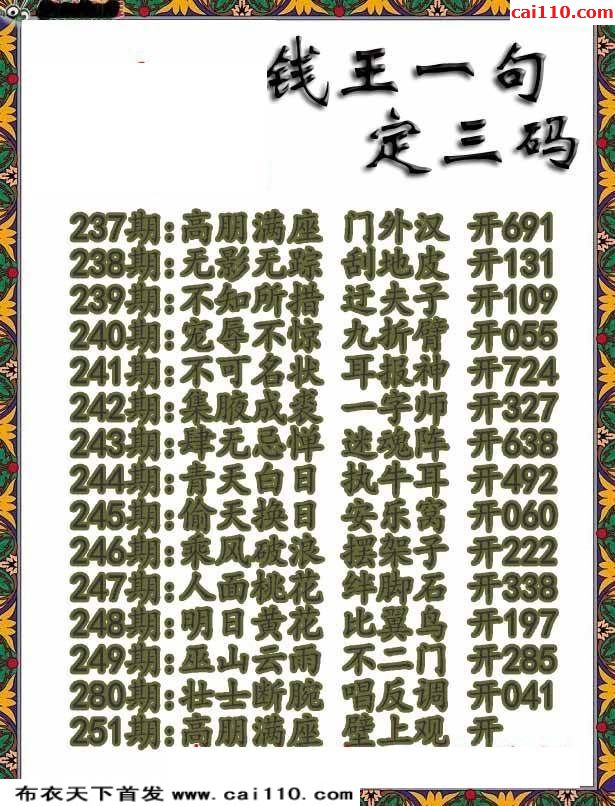 cai110.com
钱王一句
定三码
237期:高朋满座 门外汉 开691
238期:无影无踪 刮地皮 开131
239期:不知所措 迂夫子 开109
240期:宠辱不惊 九折臂 开055
241期:不可名状 耳报神 开724
242期:集腋成裘 一字师 开327
243期:肆无忌惮 迷魂阵 开638
244期:青天白日 执牛耳 开492
245期:偷天换日 安乐窝 开060
246期:乘风破浪 摆架子 开222
247期:人面桃花 绊脚石 开338
248期:明日黄花 比翼鸟 开197
249期:巫山云雨 不二门 开285
280期:壮士断腕 唱反调 开041
251期:高朋满座 壁上观 开
布衣天下首发 www.cai110.com